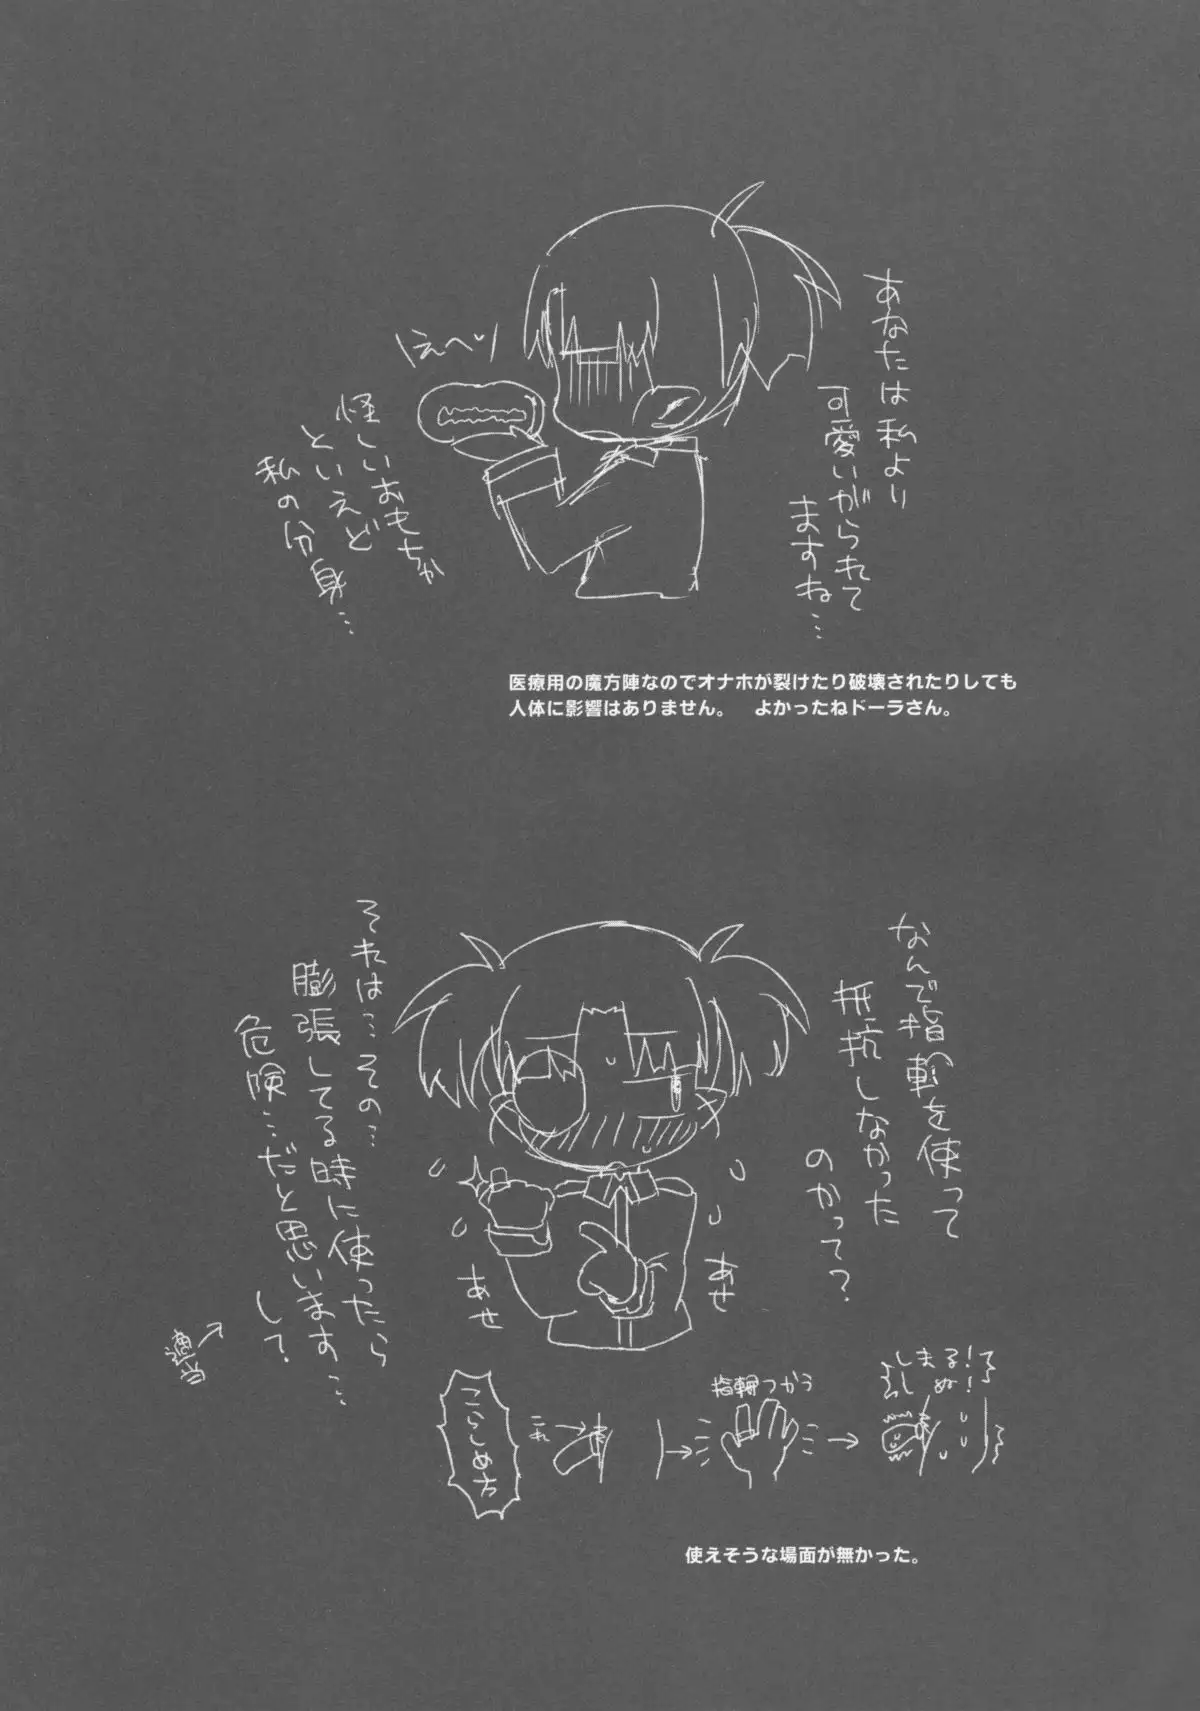 あなたは私より
可愛いがられて
ますね…
にえへり
怪しいおもちゃ
といえど
私の分身…
医療用の魔方陣なのでオナホが裂けたり破壊されたりしても
人体に影響はありません。　よかったねドーラさん。
なんで指輪を使って
抵抗しなかった
のかって?
それは…その…
膨張してる時に使ったら
危険…だと思います…
して?
適当
あせ
あせ
こらしめ方
これ
指輪つかう
しまる!
しぬ!
使えそうな場面が無かった。